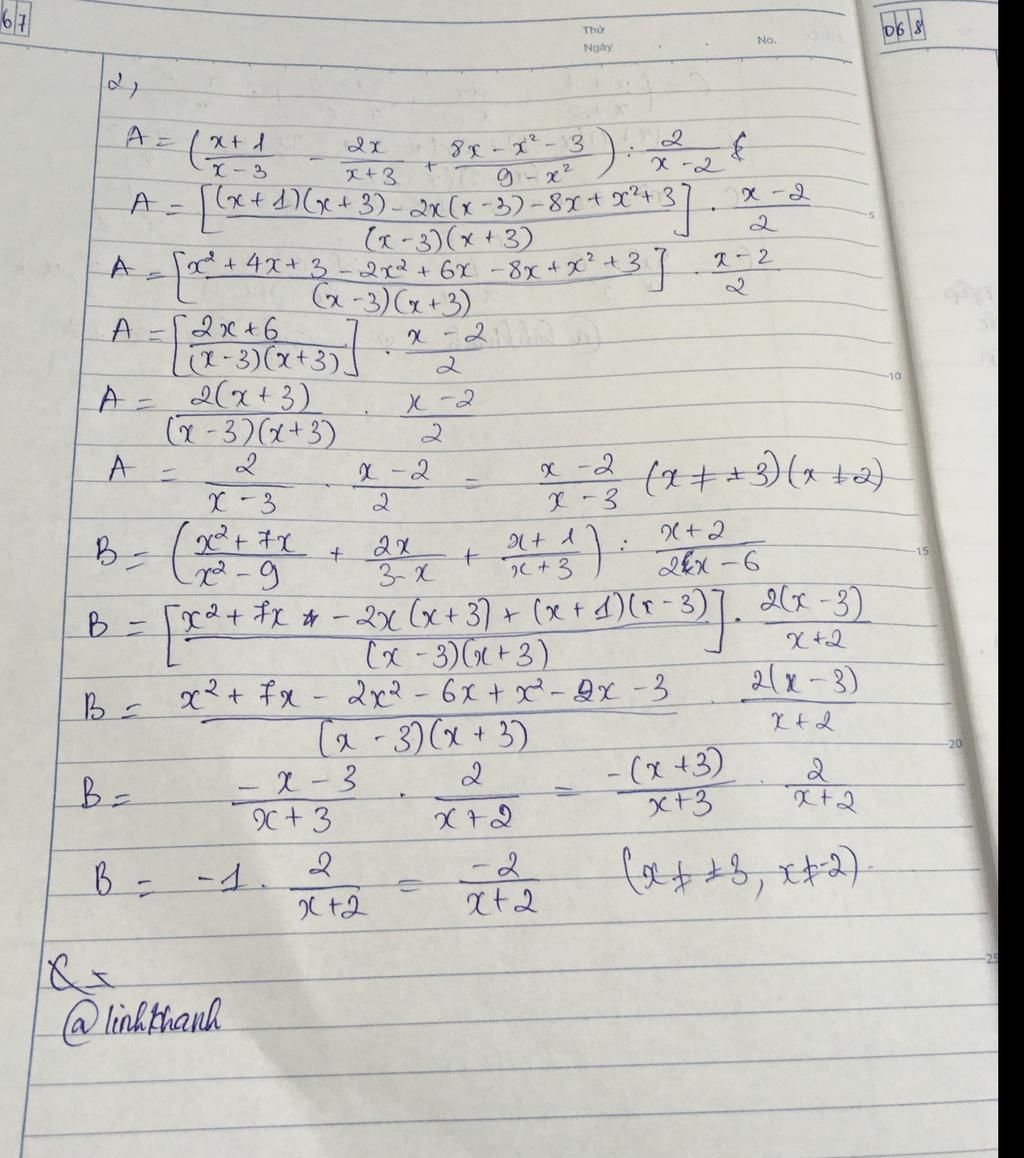 67
Thứ
Ngày
No.
068
2,
A = ( (x+1)/(x-3) - 2x/(x+3) + (8x - x² - 3)/(9 - x²) ) : 2/(x-2)
A = [ ((x+1)(x+3) - 2x(x-3) - 8x + x² + 3)/((x-3)(x+3)) ] . (x-2)/2
5
A = [ (x² + 4x + 3 - 2x² + 6x - 8x + x² + 3)/((x-3)(x+3)) ] . (x-2)/2
A = [ (2x+6)/((x-3)(x+3)) ] . (x-2)/2
10
A = 2(x+3)/((x-3)(x+3)) . (x-2)/2
A = 2/(x-3) . (x-2)/2 = (x-2)/(x-3) (x ≠ ±3)(x ≠ 2)
B = ( (x²+7x)/(x²-9) + 2x/(3-x) + (x+1)/(x+3) ) : (x+2)/(2x-6)
15
B = [ (x² + 7x - 2x(x+3) + (x+1)(x-3))/((x-3)(x+3)) ] . 2(x-3)/(x+2)
B = (x² + 7x - 2x² - 6x + x² - 2x - 3)/((x-3)(x+3)) . 2(x-3)/(x+2)
20
B = (-x-3)/(x+3) . 2/(x+2) = -(x+3)/(x+3) . 2/(x+2)
B = -1 . 2/(x+2) = -2/(x+2) (x ≠ ±3, x ≠ -2)
25
@linhkhanh